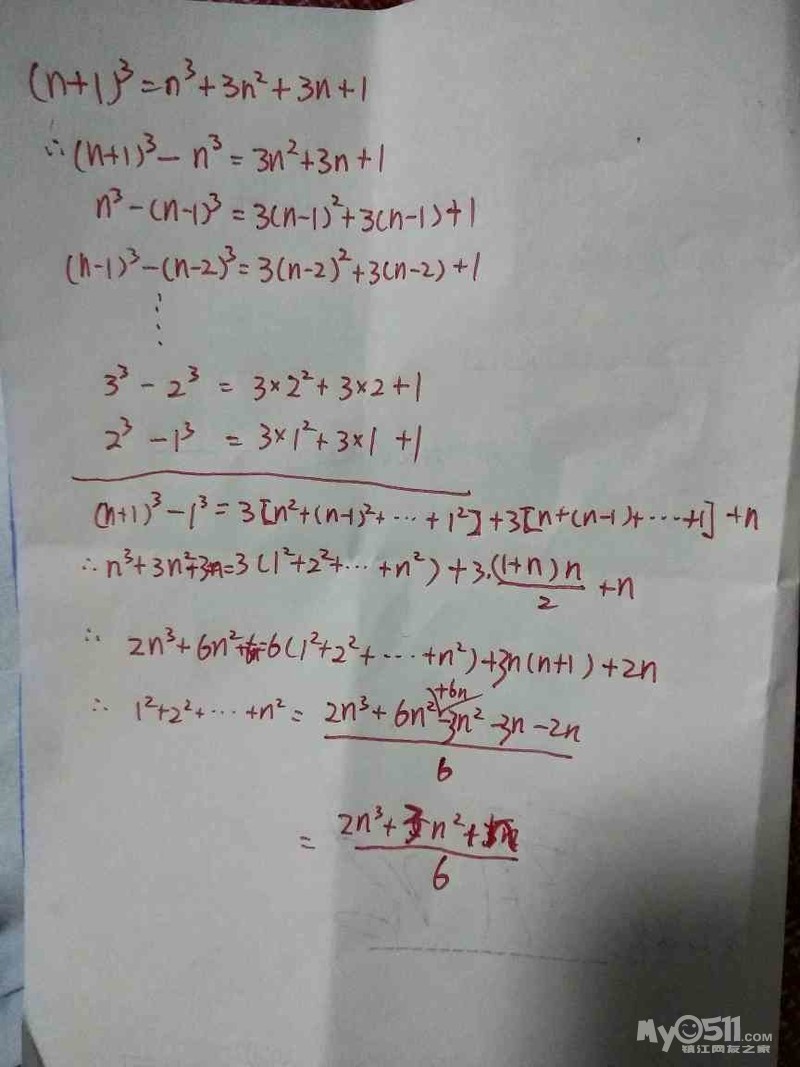 (n+1)³=n³+3n²+3n+1
∴(n+1)³-n³=3n²+3n+1
n³-(n-1)³=3(n-1)²+3(n-1)+1
(n-1)³-(n-2)³=3(n-2)²+3(n-2)+1
⋮
3³-2³=3×2²+3×2+1
2³-1³=3×1²+3×1+1
(n+1)³-1³=3[n²+(n-1)²+⋯+1²]+3[n+(n-1)+⋯+1]+n
∴n³+3n²+3n=3(1²+2²+⋯+n²)+3·(1+n)n/2+n
∴2n³+6n²+6n=6(1²+2²+⋯+n²)+3n(n+1)+2n
+6n
∴1²+2²+⋯+n²=(2n³+6n²-3n²-3n-2n)/6
=(2n³+3n²+n)/6
My0511.COM
镇江网友之家